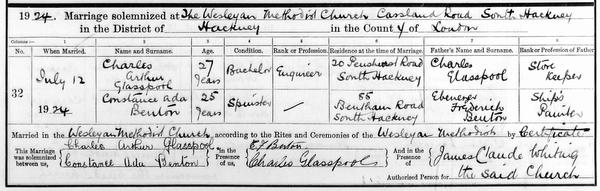 1924. Marriage solemnized at The Wesleyan Methodist Church Cassland Road South Hackney
in the District of Hackney in the County of London
Columns :— 1 2 3 4 5 6 7 8
No. When Married. Name and Surname. Age. Condition. Rank or Profession. Residence at the time of Marriage. Father's Name and Surname. Rank or Profession of Father
32
July 12 1924
Charles Arthur Glasspool 27 Years Bachelor Engineer 20 Penshurst Road South Hackney Charles Glasspool Store Keeper
Constance Ada Benton 25 Years Spinster — 55 Bentham Road South Hackney Ebenezer Frederick Benton Ship's Painter
Married in the Wesleyan Methodist Church according to the Rites and Ceremonies of the Wesleyan Methodists by Certificate
This Marriage was solemnized between us,
Charles Arthur Glasspool
Constance Ada Benton
in the Presence of us,
E F Benton
Charles Glasspool
And in the Presence of
James Claude Whiting
Authorised Person for the said Church